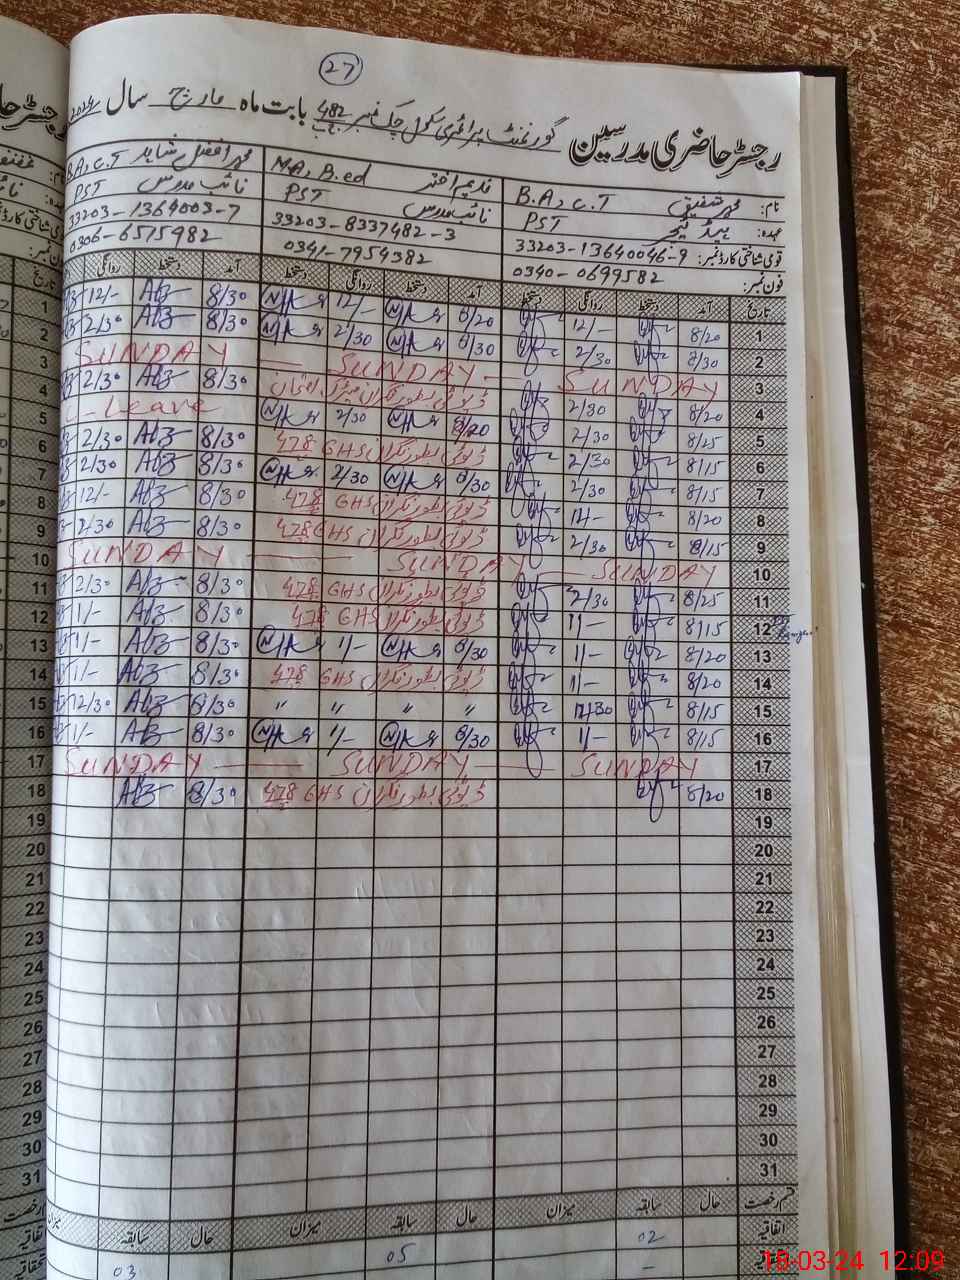 27
رجسٹر حاضری مدرسین گورنمنٹ پرائمری سکول چک نمبر 482 ج ب بابت ماہ مارچ سال 2024
نام: محمد شفیق B.A, C.T
عہدہ: ہیڈ ٹیچر PST
قومی شناختی کارڈ نمبر: 33203-13640046-9
فون نمبر: 0340-0699582
M.A, B.ed
نائب مدرس PST
33203-8337482-3
0341-7954382
محمد افضل شاہد B.A, C.T
نائب مدرس PST
33203-1364003-7
0306-6515982
تاریخ آمد دستخط روانگی دستخط آمد دستخط روانگی دستخط آمد دستخط روانگی تاریخ
1 8/20 12/- 8/20 12/- 8/30 12/- 1
2 8/30 2/30 8/30 2/30 8/30 2/30 2
3 SUNDAY SUNDAY SUNDAY 3
4 8/20 2/30 ڈیوٹی بطور نگران میٹرک امتحان 8/30 2/30 4
5 8/25 2/30 8/20 2/30 C-Leave 5
6 8/15 2/30 ڈیوٹی بطور نگران GHS 478 8/30 2/30 6
7 8/15 2/30 8/30 2/30 8/30 2/30 7
8 8/20 12/- ڈیوٹی بطور نگران GHS 478 8/30 12/- 8
9 8/15 2/30 ڈیوٹی بطور نگران GHS 478 8/30 2/30 9
10 SUNDAY SUNDAY SUNDAY 10
11 8/25 2/30 ڈیوٹی بطور نگران GHS 478 8/30 2/30 11
12 8/15 1/- ڈیوٹی بطور نگران GHS 478 8/30 1/- 12
13 8/20 1/- 8/30 1/- 8/30 1/- 13
14 8/20 1/- ڈیوٹی بطور نگران GHS 478 8/30 1/- 14
15 8/15 12/30 " " " " 8/30 12/30 15
16 8/15 1/- 8/30 1/- 8/30 1/- 16
17 SUNDAY SUNDAY SUNDAY 17
18 8/20 ڈیوٹی بطور نگران GHS 478 8/30 18
19 19
20 20
21 21
22 22
23 23
24 24
25 25
26 26
27 27
28 28
29 29
30 30
31 31
قسم رخصت حال سابقہ میزان حال سابقہ میزان حال سابقہ میزان
اتفاقیہ 02 05 03
18-03-24 12:09